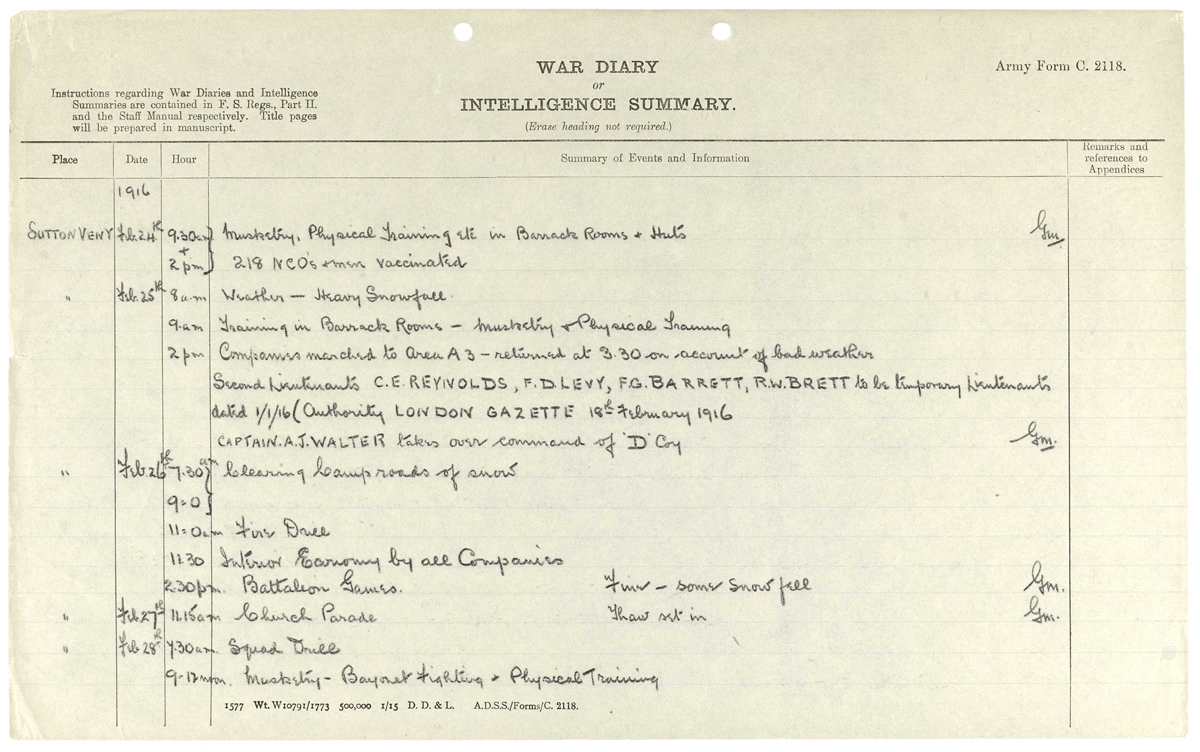 WAR DIARY
or
INTELLIGENCE SUMMARY.
(Erase heading not required.)
Army Form C. 2118.
Instructions regarding War Diaries and Intelligence
Summaries are contained in F. S. Regs., Part II.
and the Staff Manual respectively. Title pages
will be prepared in manuscript.
Place Date Hour Summary of Events and Information Remarks and references to Appendices
1916
SUTTON VENY Feb. 24th 9.30am Musketry, Physical Training etc in Barrack Rooms + Huts Gm.
+
2 pm 218 NCO's + men vaccinated
" Feb. 25th 8 a.m Weather — Heavy Snowfall.
9. am Training in Barrack Rooms — Musketry + Physical Training
2 pm Companies marched to Area A 3 – returned at 3.30 on account of bad weather
Second Lieutenants C.E. REYNOLDS, F.D. LEVY, F.G. BARRETT, R.W. BRETT to be temporary Lieutenants
dated 1/1/16 (Authority LONDON GAZETTE 18th February 1916
CAPTAIN. A.J. WALTER takes over command of 'D' Coy Gm.
" Feb 26th 7.30 am Clearing Camp roads of snow
9=0
11=0am Fire Drill
11.30 Interior Economy by all Companies
2.30pm. Battalion Games. Fine — some snow fell Gm.
" Feb 27th 11.15am Church Parade Thaw set in Gm.
" Feb 28th 7.30am. Squad Drill
9-12 noon. Musketry – Bayonet Fighting + Physical Training
1577 Wt. W10791/1773 500,000 1/15 D. D. & L. A.D.S.S./Forms/C. 2118.